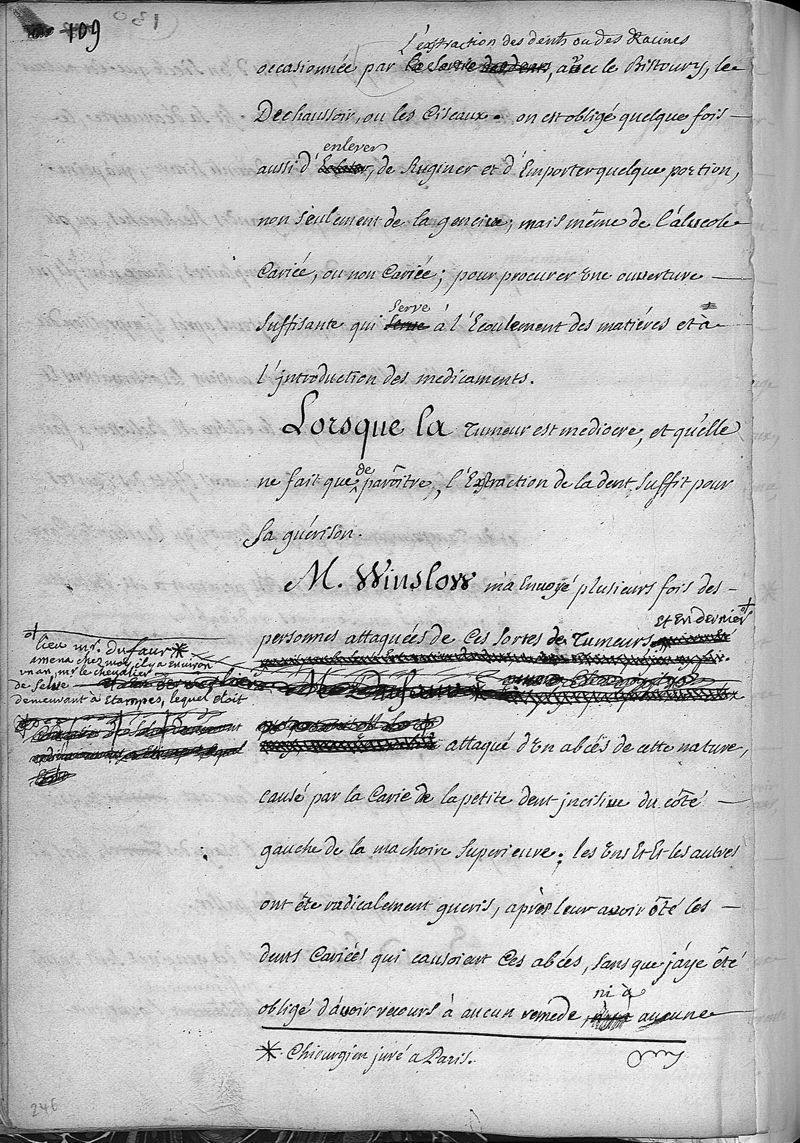 109
L'extraction des dents ou des Racines
occasionnée par avec le Bistoury, le
Dechaussoir, ou les Ciseaux. on est obligé quelque fois
enlever
aussi d' de Ruginer et d'Emporter quelque portion,
non seulement de la gencive, mais même de l'alveole
Cariée, ou non Cariée; pour procurer une ouverture
serve
suffisante qui à l'Ecoulement des matiéres et à
l'introduction des medicaments.
Lorsque la Tumeur est mediocre, et qu'elle
de
ne fait que parôitre, l'Extraction de la dent, suffit pour
sa guérison.
M. Winslow m'a Envoyé plusieurs fois des
et En dernier
personnes attaquées de Ces Sortes de Tumeurs
lieu mr. dufaur*
amena chez moy, il y a environ
un an, mr. le chevalier
de Selve
M. Dufaur *
demeurant à Etampes, lequel étoit
attaqué d'un abcés de cette nature,
causé par la Carie de la petite dent incisive du côté
gauche de la machoire Superieure; les uns Et Et les autres
ont été radicalement gueris, aprés leur avoir ôté les
dents Cariées qui causoient Ces abcés, sans que j'aye été
ni à
obligé d'avoir recours à aucun remede aucune
* Chirurgien juré a Paris.
246